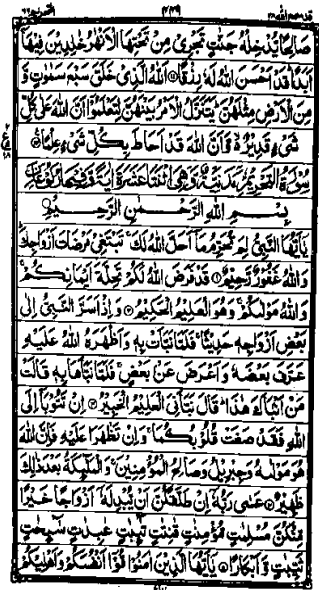 صَالِحًا يُّدْخِلْهُ جَنّٰتٍ تَجْرِيْ مِنْ تَحْتِهَا الْاَنْهٰرُ خٰلِدِيْنَ فِيْهَا
اَبَدًا ؕ قَدْ اَحْسَنَ اللّٰهُ لَهٗ رِزْقًا ۝ اَللّٰهُ الَّذِيْ خَلَقَ سَبْعَ سَمٰوٰتٍ وَّ
مِنَ الْاَرْضِ مِثْلَهُنَّ ؕ يَتَنَزَّلُ الْاَمْرُ بَيْنَهُنَّ لِتَعْلَمُوْۤا اَنَّ اللّٰهَ عَلٰى كُلِّ
شَيْءٍ قَدِيْرٌ ۙ وَّ اَنَّ اللّٰهَ قَدْ اَحَاطَ بِكُلِّ شَيْءٍ عِلْمًا ۝
سُوْرَةُ التَّحْرِيْمِ مَدَنِيَّةٌ وَّهِيَ اثْنَتَا عَشْرَةَ اٰيَةً
بِسْمِ اللّٰهِ الرَّحْمٰنِ الرَّحِيْمِ
يٰۤاَيُّهَا النَّبِيُّ لِمَ تُحَرِّمُ مَاۤ اَحَلَّ اللّٰهُ لَكَ ۚ تَبْتَغِيْ مَرْضَاتَ اَزْوَاجِكَ ؕ
وَ اللّٰهُ غَفُوْرٌ رَّحِيْمٌ ۝ قَدْ فَرَضَ اللّٰهُ لَكُمْ تَحِلَّةَ اَيْمَانِكُمْ ۚ
وَ اللّٰهُ مَوْلٰىكُمْ ۚ وَ هُوَ الْعَلِيْمُ الْحَكِيْمُ ۝ وَ اِذْ اَسَرَّ النَّبِيُّ اِلٰى
بَعْضِ اَزْوَاجِهٖ حَدِيْثًا ۚ فَلَمَّا نَبَّاَتْ بِهٖ وَ اَظْهَرَهُ اللّٰهُ عَلَيْهِ
عَرَّفَ بَعْضَهٗ وَ اَعْرَضَ عَنْۢ بَعْضٍ ۚ فَلَمَّا نَبَّاَهَا بِهٖ قَالَتْ
مَنْ اَنْۢبَاَكَ هٰذَا ؕ قَالَ نَبَّاَنِيَ الْعَلِيْمُ الْخَبِيْرُ ۝ اِنْ تَتُوْبَاۤ اِلَى
اللّٰهِ فَقَدْ صَغَتْ قُلُوْبُكُمَا ۚ وَ اِنْ تَظٰهَرَا عَلَيْهِ فَاِنَّ اللّٰهَ
هُوَ مَوْلٰىهُ وَ جِبْرِيْلُ وَ صَالِحُ الْمُؤْمِنِيْنَ ۚ وَ الْمَلٰٓئِكَةُ بَعْدَ ذٰلِكَ
ظَهِيْرٌ ۝ عَسٰى رَبُّهٗۤ اِنْ طَلَّقَكُنَّ اَنْ يُّبْدِلَهٗۤ اَزْوَاجًا خَيْرًا
مِّنْكُنَّ مُسْلِمٰتٍ مُّؤْمِنٰتٍ قٰنِتٰتٍ تٰٓئِبٰتٍ عٰبِدٰتٍ سٰٓئِحٰتٍ
ثَيِّبٰتٍ وَّ اَبْكَارًا ۝ يٰۤاَيُّهَا الَّذِيْنَ اٰمَنُوْا قُوْۤا اَنْفُسَكُمْ وَ اَهْلِيْكُمْ